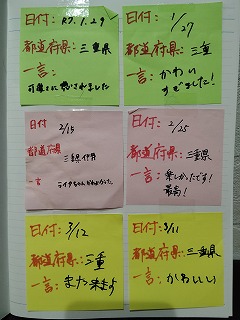 日付: R7.1.29
都道府県: 三重県
一言:
されました
日付: 1/27
都道府県: 三重
一言: かわい
すぎました!
日付 2/15
都道府県 三重県 伊勢
一言 ライタちゃん かわいかった。
日付: 2/25
都道府県: 三重県
一言: 楽しかったです!
最高!
日付: 3/12
都道府県: 三重
一言: また来ます
日付: 3/11
都道府県: 三重県
一言: かわいい